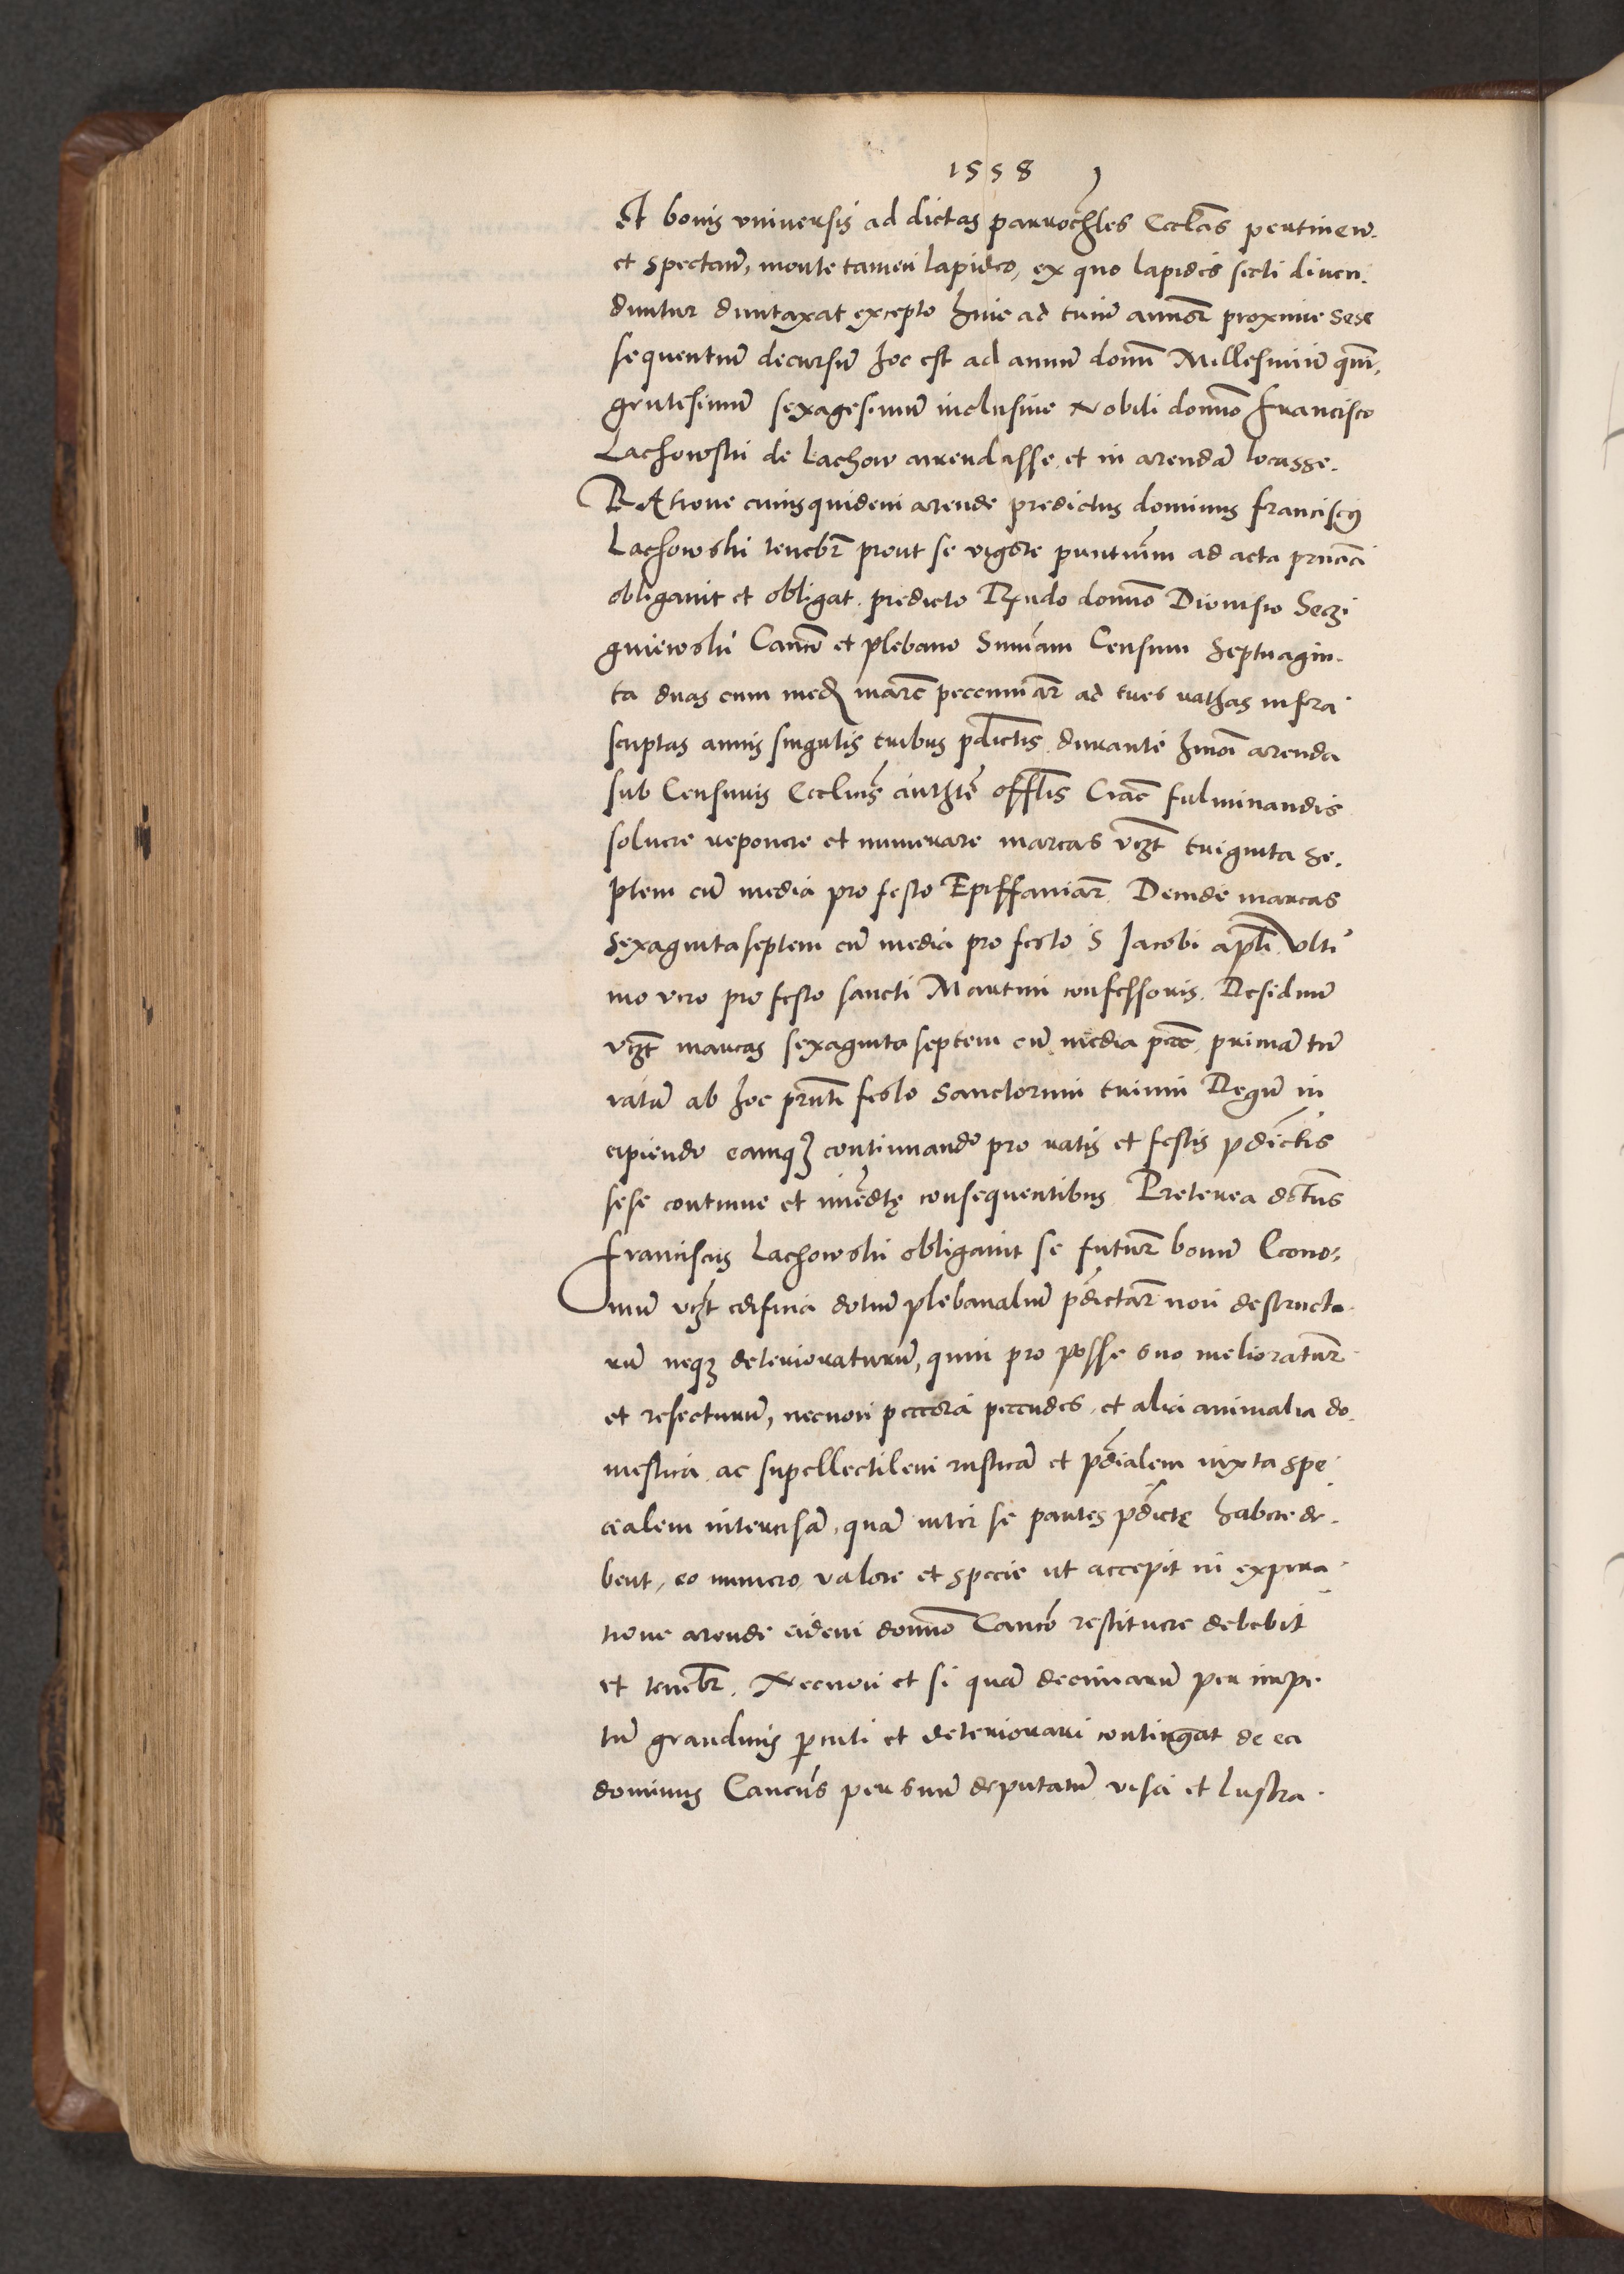 1558
Et bonis universis ad dictas parrochles Eccl̄as pertinen.
et spectan̄, monte tamen lapideo, ex quo lapides secti diven.
duntur duntaxat excepto hinc ad triū annor̄ proxime sese
sequentiū decursū hoc est ad annū domī Millesimū quin.
gentesimū sexagesimū inclusive Nobili domno Francisco
Lachowski de Lachow arrendasse et in arendā locasse.
RAtione cuius quidem arende predictus dominus Franciscus
Lachowski tenebr̄ prout se vigore pn̄tium ad acta pn̄cia
obligavit et obligat predicto Rn̄do domno Dionisio Seczi
gniewski Canco et plebano Sum̄am Censum Septuagin.
ta duas cum med marc̄ peccuniar̄ ad tres rathas infra
scriptas annis singulis tribus pdictis durante hm̄oi arenda
sub Censuris Eccl̄icis authte offlis Crac̄ fulminandis
solvere reponere et numerare marcas vz̄t triginta se.
ptem cū media pro festo Epiffaniar̄. Deinde marcas
sexaginta septem cū media pro festo S Jacobi apl̄i ulti
mo vero pro festo sancti Martini confessoris. Residuū
vz̄t marcas sexaginta septem cū media pec̄, primā tn̄
ratā ab hoc pn̄ti festo Sanctorum trium Regū in
cipiendo eamqz continuando pro ratis et festis pdictis
sese continue et im̄edte consequentibus Preterea dictus
Franciscus Lachowski obligavit se futur̄ bonū Econo.
mū vz̄t edificia dotiū plebanaliū pdictar̄ non destructu.
rū neqz deterioraturū, quin pro posse suo melioratur̄
et refecturū, necnon peccora peccudes et alia animalia do.
mestica ac supellectilem rusticā et pdialem iuxta spe
cialem intercisā, quā inter se partes pdicte habere de.
bent, eo numero valore et specie ut accepit in expira
tione arende eidem domno Canco restituere debebit
et tenebr̄. Necnon et si quā decimarū per impe
tū grandinis pcuti et deteriorari contingat de ea
dominus Cancus per suū deputatū visa et lustra.